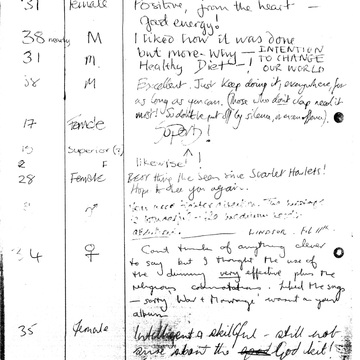 31 female Positive, from the heart –
good energy!
38 nearly M I liked how it was done
31 M. but more - Why – INTENTION TO CHANGE OUR WORLD
Healthy Diet – !
38 M Excellent. Just keep doing it, everywhere, for
as long as you can. (Those who don't clap need it
most! So don't be put off by silence, or even offence).
17 Female Spooky!
19 Superior (?)
2 F likewise!
28 Female Best thing I've seen since Scarlet Harlets!
Hope to see you again.
LINDSEY.
34 ♀ Can't think of anything clever
to say but I thought the use of
the dummy very effective plus the
religious connotations. Liked the songs
– sorry War & Marriage wasn't on your
album
35 female Intelligent & skillful – still not
sure about the God bit!